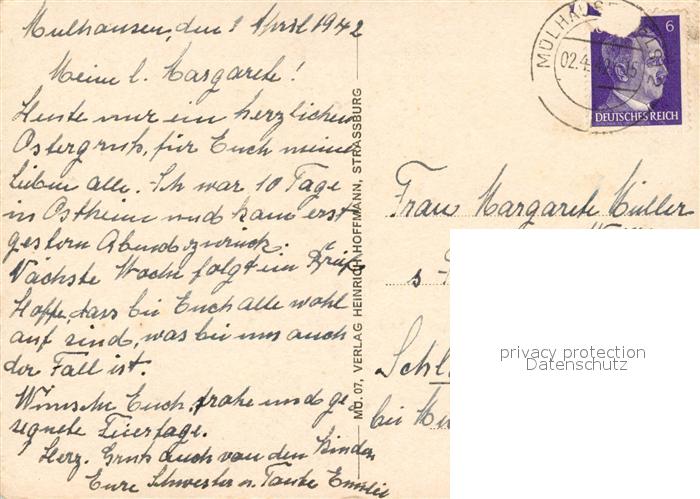 Mülhausen, den 1 April 1942
Meine l. Margarete!
Heute nur ein herzlichen
Ostergruß, für Euch meine
lieben alle. Ich war 10 Tage
in Ostheim und kam erst
gestern Abend zurück.
Nächste Woche folgt ein Brief
Hoffe, dass bei Euch alle wohl
auf sind, was bei uns auch
der Fall ist.
Wünsche Euch, frohe und ge-
segnete Feiertage.
Herz. Gruß auch von den Kinder
Eure Schwester u. Tante
MÜ. 07, VERLAG HEINRICH HOFFMANN, STRASSBURG
MÜLHAUSE
02.4.42
6
DEUTSCHES REICH
Frau Margarete Müller
Schl
bei
privacy protection
Datenschutz